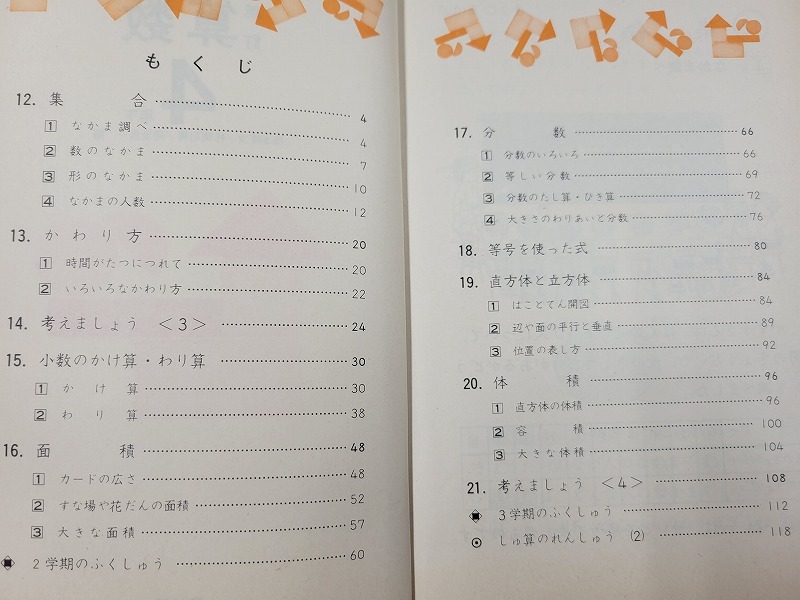 もくじ
12. 集合 4
1 なかま調べ 4
2 数のなかま 7
3 形のなかま 10
4 なかまの人数 12
13. かわり方 20
1 時間がたつにつれて 20
2 いろいろなかわり方 22
14. 考えましょう <3> 24
15. 小数のかけ算・わり算 30
1 かけ算 30
2 わり算 38
16. 面積 48
1 カードの広さ 48
2 すな場や花だんの面積 52
3 大きな面積 57
2学期のふくしゅう 60
17. 分数 66
1 分数のいろいろ 66
2 等しい分数 69
3 分数のたし算・ひき算 72
4 大きさのわりあいと分数 76
18. 等号を使った式 80
19. 直方体と立方体 84
1 はことてん開図 84
2 辺や面の平行と垂直 89
3 位置の表し方 92
20. 体積 96
1 直方体の体積 96
2 容積 100
3 大きな体積 104
21. 考えましょう <4> 108
3学期のふくしゅう 112
しゅ算のれんしゅう (2) 118